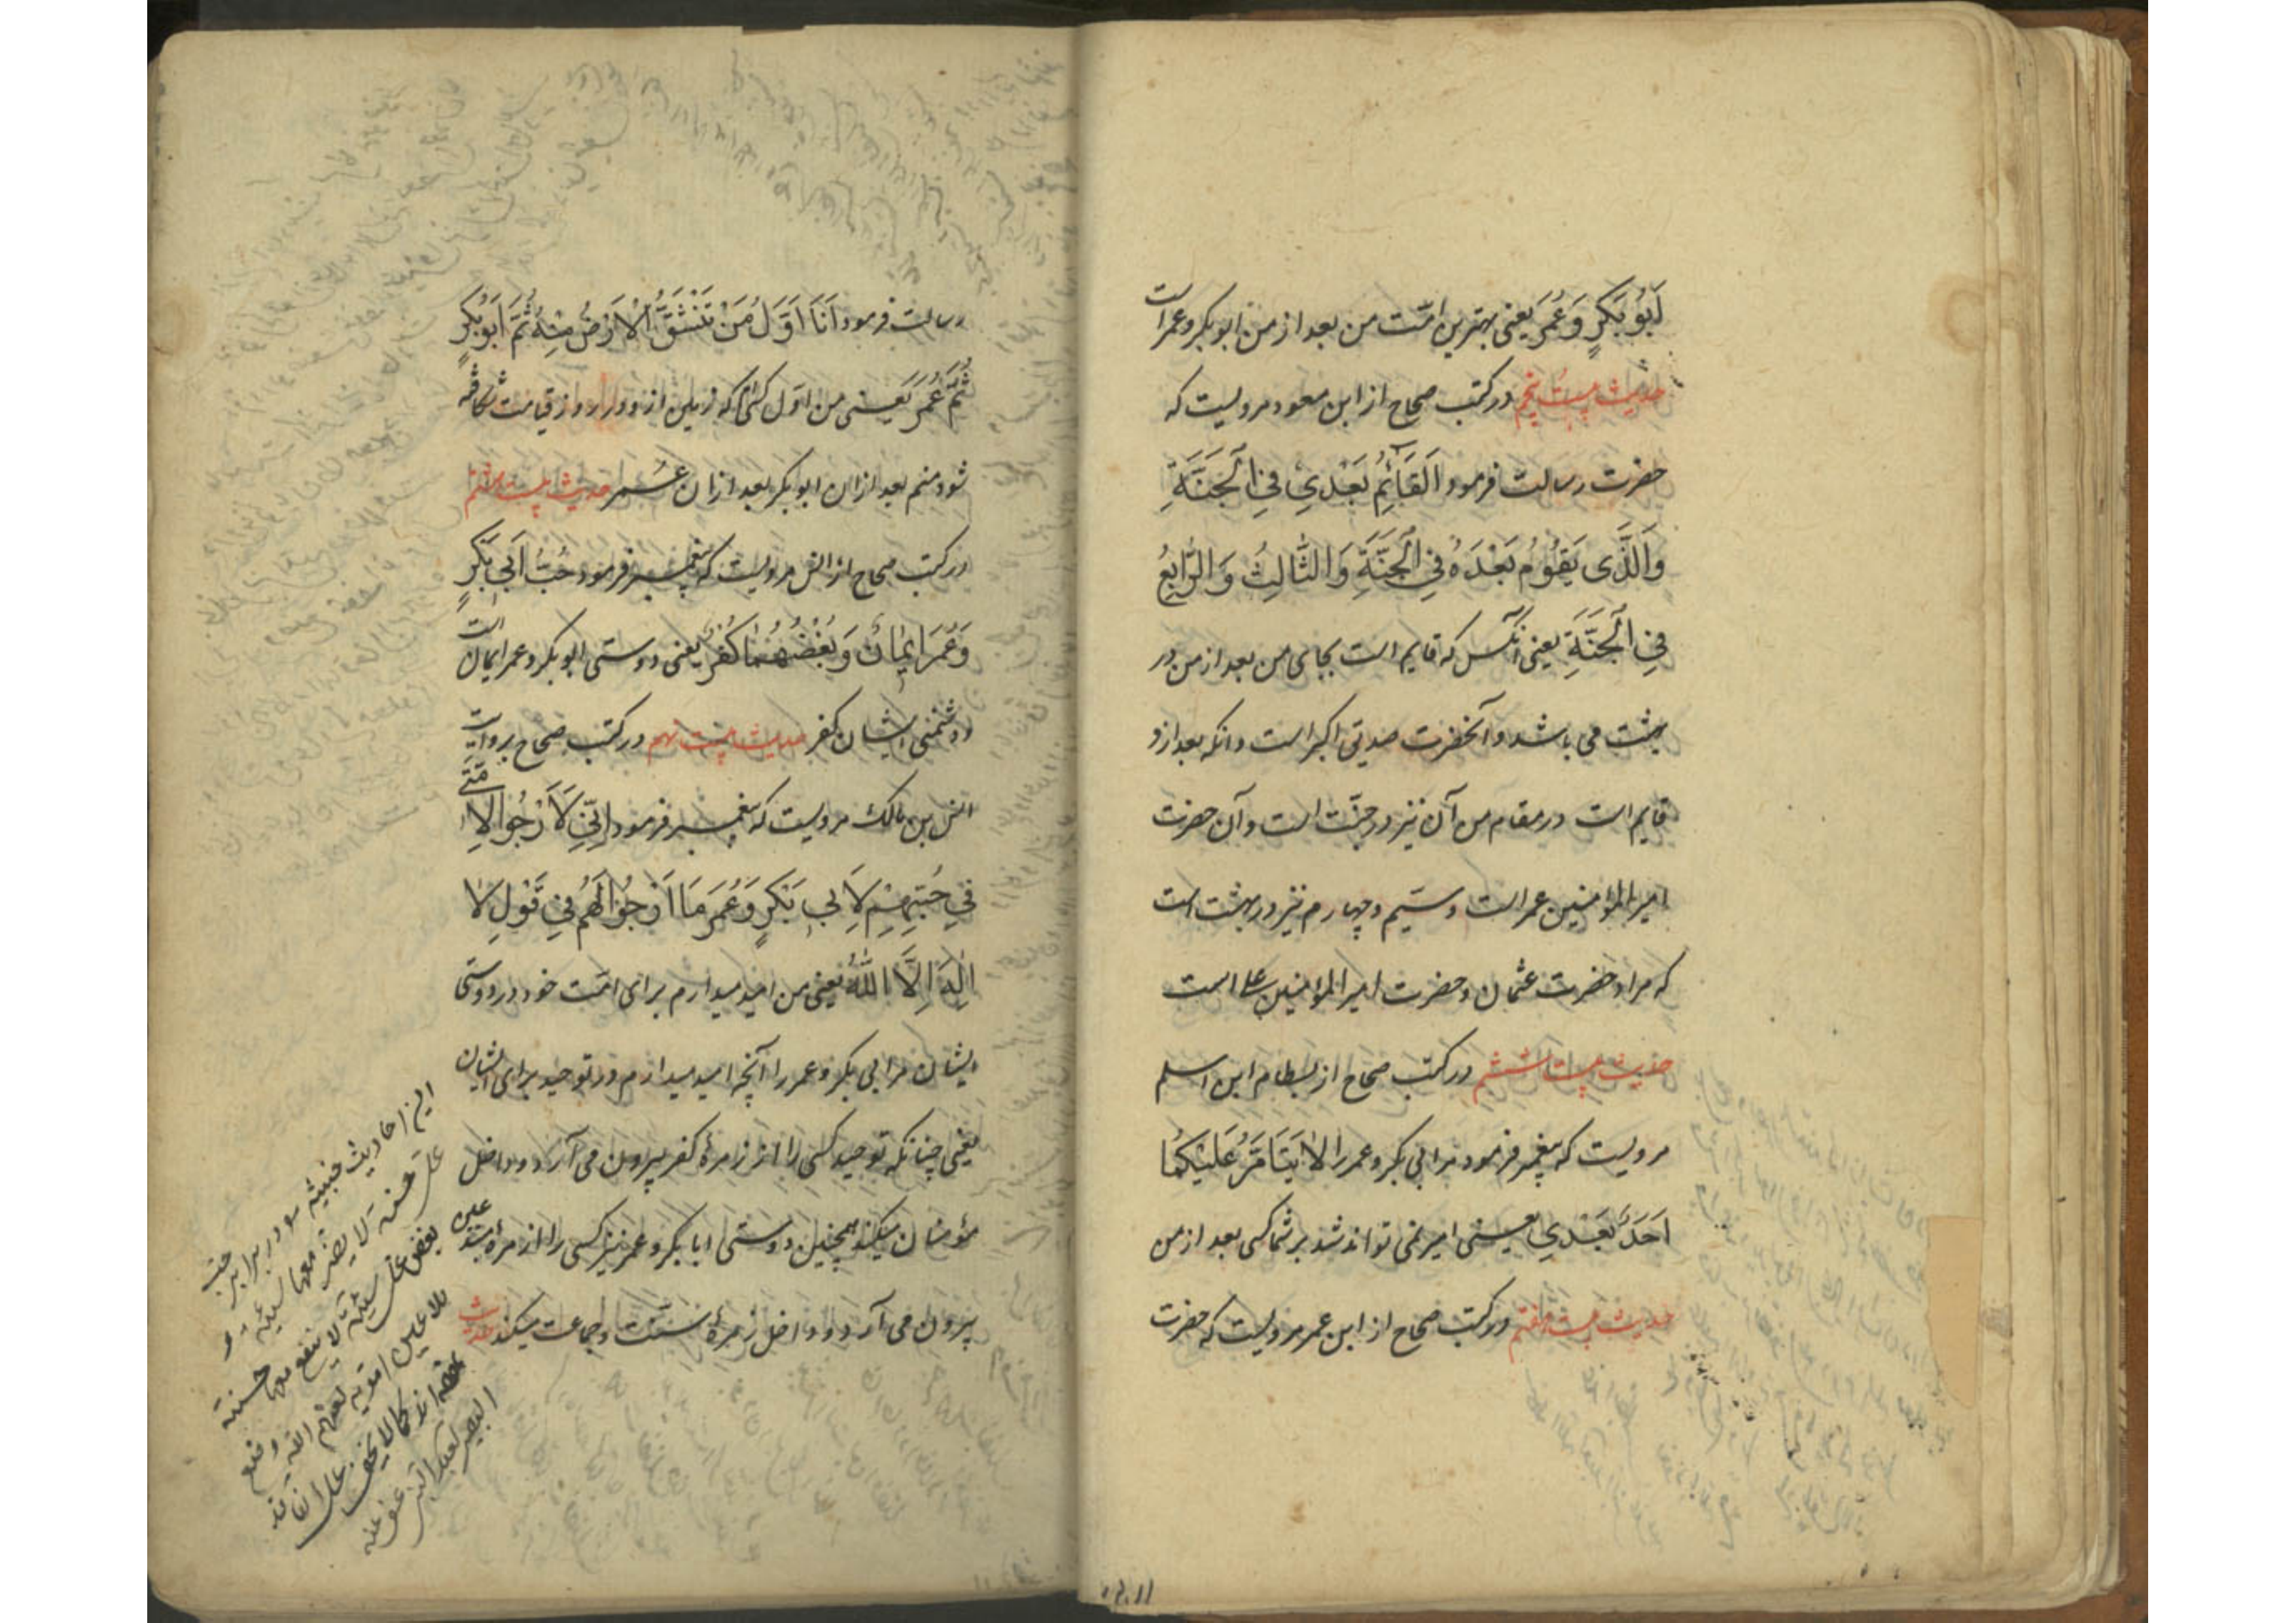 اَبُو بَكْرٍ وَ عُمَرَ يعنى بهترين امّت من بعد از من ابو بكر و عمر است
حديث بيست پنجم در كتب صحاح از ابن مسعود مرويست كه
حضرت رسالت فرمود اَلقَائِمُ بَعْدِي فِي الْجَنَّةِ
وَالَّذى يَقُوُمُ بَعْدَهُ فِي الْجَنَّةِ وَالثَّالِثُ وَالرَّابِعُ
فِي الْجَنَّةِ يعنى آنكس كه قايم است بجاى من بعد از من در
بهشت مى باشد و آنحضرت صديق اكبر است و آنكه بعد ازو
قايم است در مقام من آن نيز در جنّت است و آن حضرت
امير المؤمنين عمر است و سيّم و چهارم نيز در بهشت است
كه مراد حضرت عثمان و حضرت امير المؤمنين على است
حديث بيست ششم در كتب صحاح از بسطام ابن اسلم
مرويست كه پيغمبر فرمود مرابى بكر و عمر را لا يَتَاَمَّرُ عَلَيْكُمَا
اَحَدٌ بَعْدِي يعنى امير نمى تواند شد بر شما كسى بعد از من
حديث بيست هفتم در كتب صحاح از ابن عمر مرويست كه حضرت
رسالت فرمود اَنَا اَوَّلُ مَنْ تَنْشَقُّ الْاَرْضُ مِنْهُ ثُمَّ اَبُو بَكْرٍ
ثُمَّ عُمَرَ يعنى من اوّل كسى ام كه زمين از و در روز قيامت شكافته
شود منم بعد از ان ابو بكر بعد ازان عمر حديث بيست هشتم
در كتب صحاح از انس مرويست كه پيغمبر فرمود حُبُّ اَبِي بَكْرٍ
وَ عُمَرَ ايمَانٌ وَ بُغْضُهُمَا كُفْرٌ يعنى دوستى ابو بكر و عمر ايمان است
و دشمنى ايشان كفر حديث بيست نهم در كتب صحاح بروايت
انس بن مالك مرويست كه پيغمبر فرمود اِنِّي لَاَرْجُو الِاُمَّتِي
فِي حُبِّهِمْ لِاَبِي بَكْرٍ وَ عُمَرَ مَا اَرْجُوا لَهُمْ فِي قَوْلِ لَا
اِلَهَ اِلَّا اللّهُ يعنى من اميد ميدارم براى امّت خود در دوستى
ايشان مرابى بكر و عمر را آنچه اميد ميدارم در توحيد براى ايشان
يعنى چنانكه توحيد كسى را از زمرهٔ كفر بيرون مى آرد و داخل
مؤمنان ميكند همچنين دوستى ابا بكر و عمر نيز كسى را از زمرهٔ مبتدعين
بيرون مى آرد و داخل زمرهٔ سنّت و جماعت ميكند حديث
اين احاديث خبيثه سو در برابر حب
على حسنة لا يضر معها سيئة و
بغض على سيئة لا ينفع معها حسنة
ملاعين امويه لعنهم الله وضع
كما لا يخفى على
البصير عفى عنه